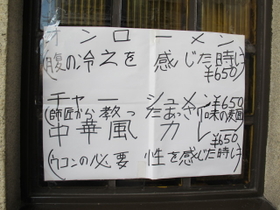 オンローメン
(腹の冷えを 感じた時に)
¥650
チャーシューメン ¥650
(師匠から教ったあっさり味の麺)
中華風カレー
¥650
(ウコンの必要性を感じた時に)